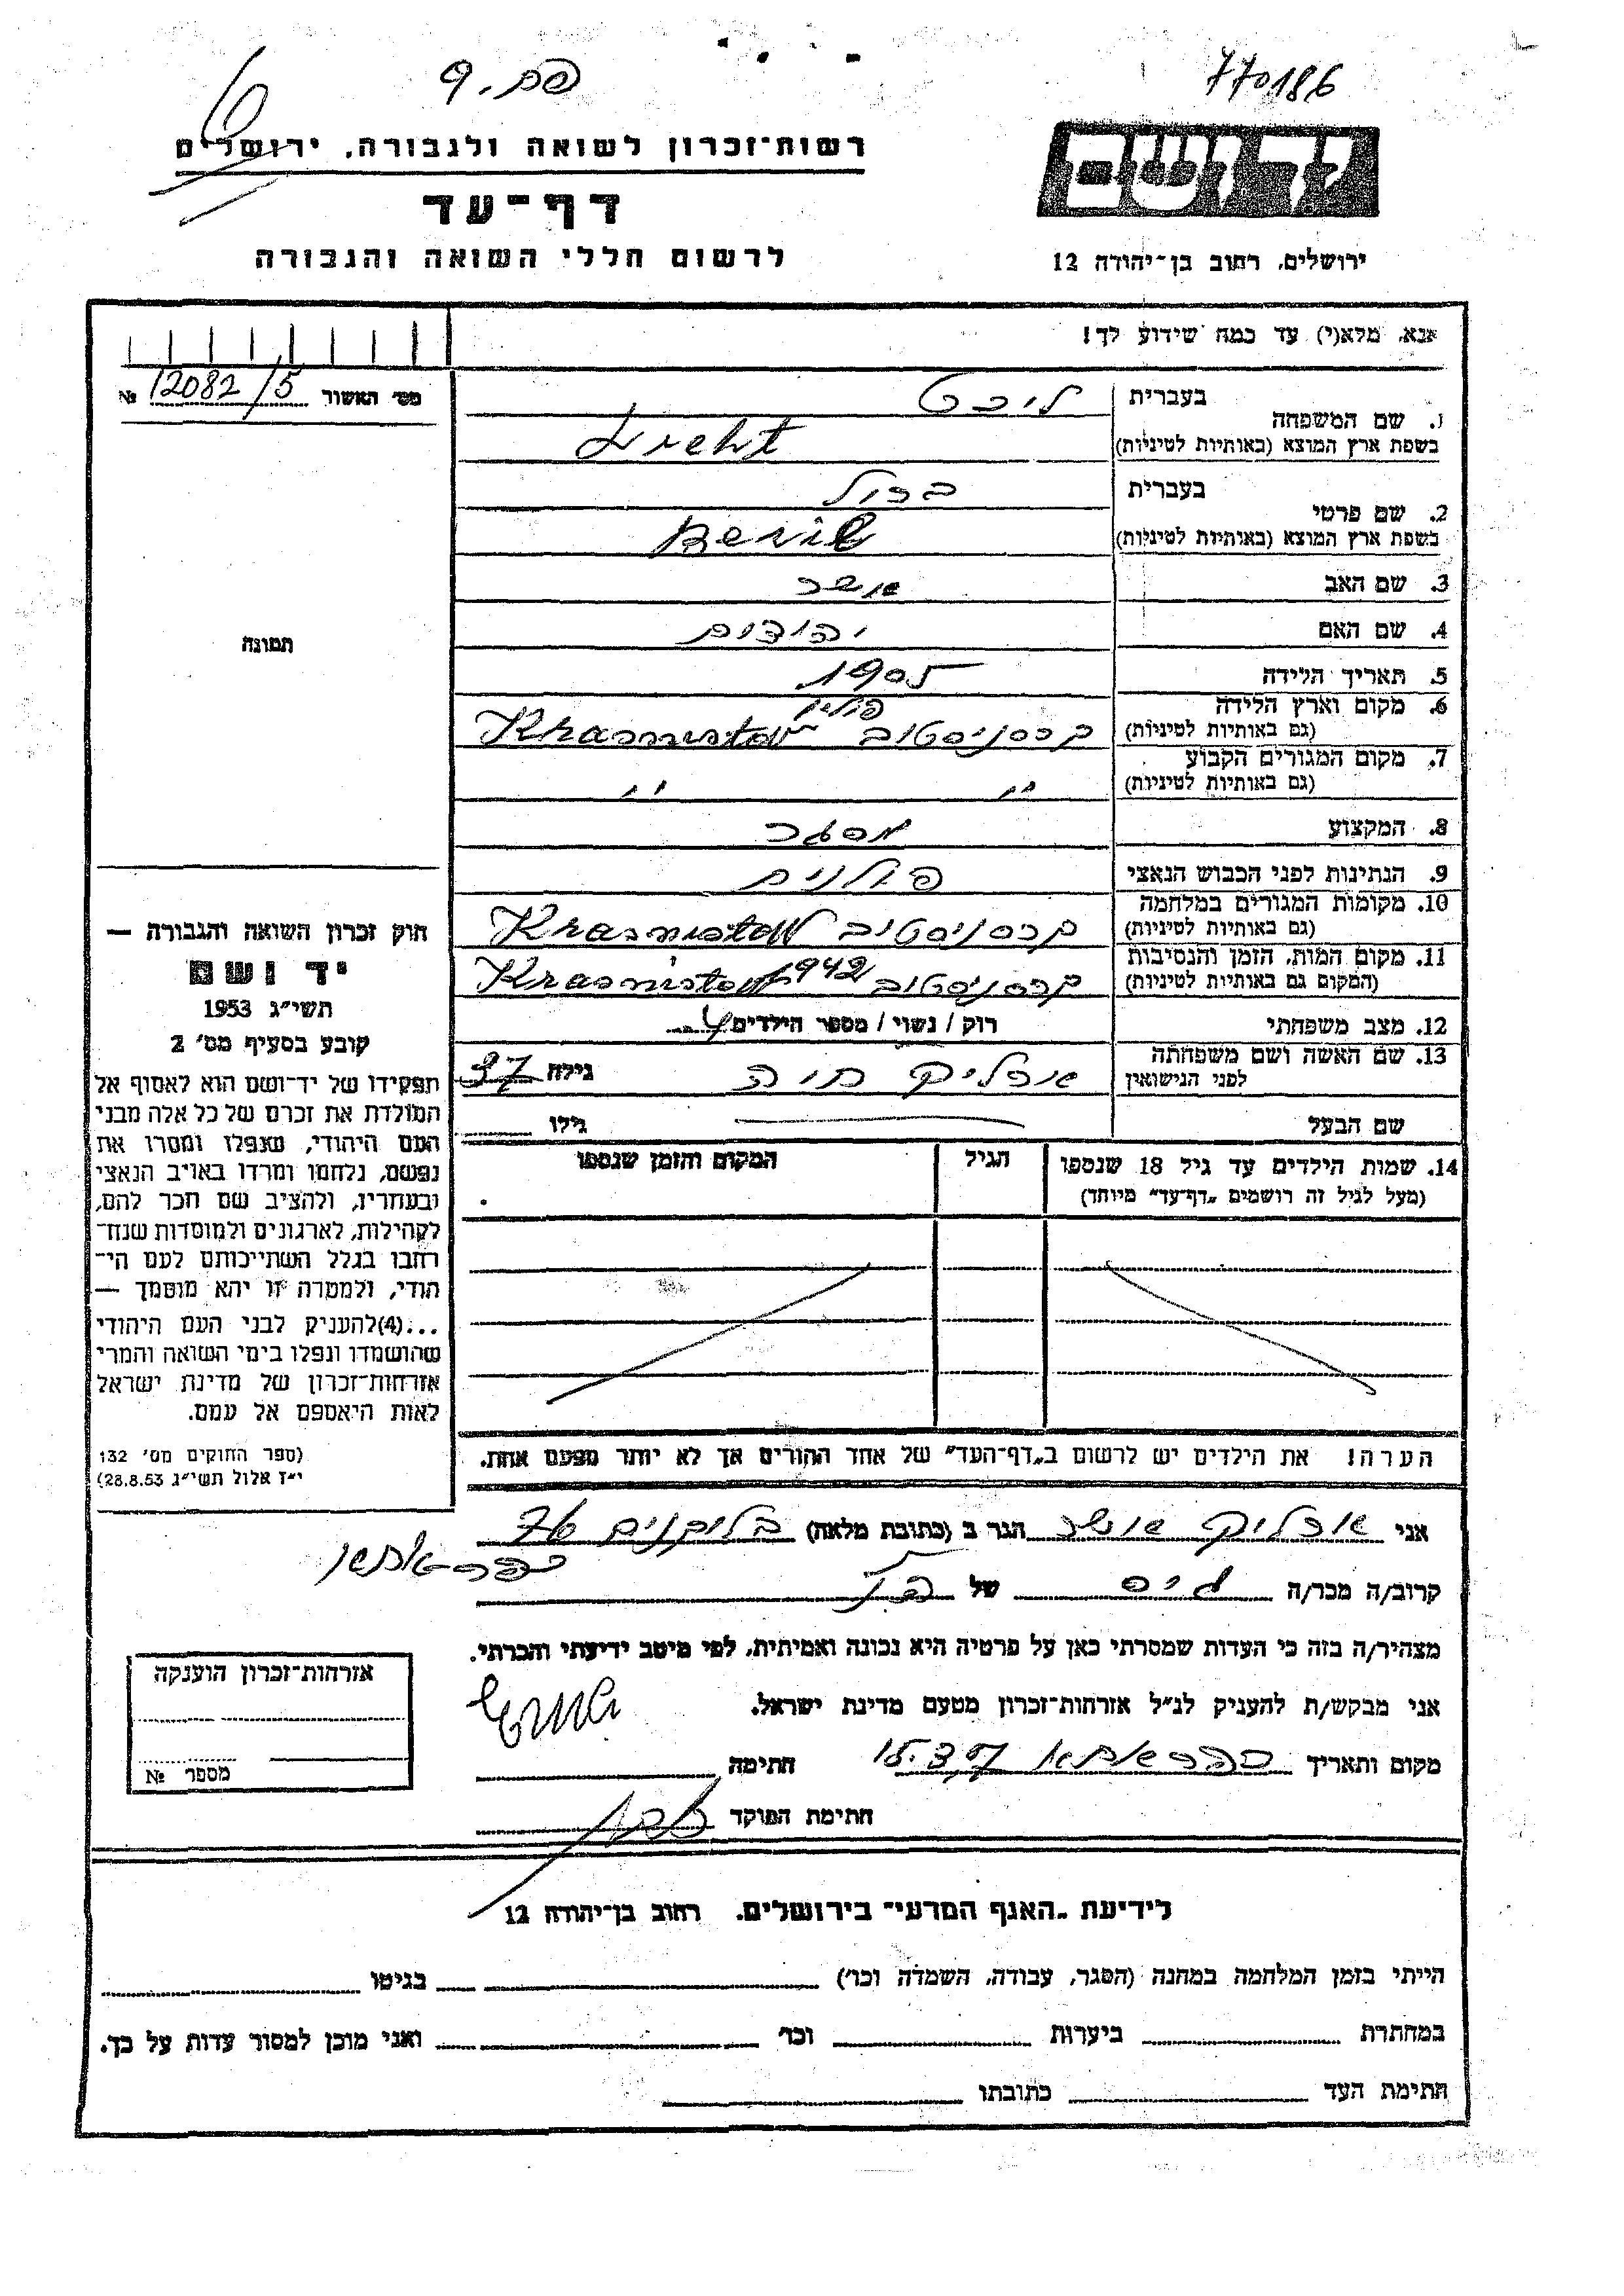 770186
רשות־זכרון לשואה ולגבורה. ירושלים
דף־עד
לרשום חללי השואה והגבורה
ירושלים, רחוב בן־יהודה 12
אנא, מלא(י) עד כמה שידוע לך!
מס׳ האשור № 12082/5
1. שם המשפחה
בעברית ליכט
בשפת ארץ המוצא (באותיות לטיניות) Licht
2. שם פרטי
בעברית ברול
בשפת ארץ המוצא (באותיות לטיניות)
3. שם האב אושר
4. שם האם יהודית
5. תאריך הלידה 1905
6. מקום וארץ הלידה
(גם באותיות לטיניות) קרסניסטוב Krasnistow פולין
7. מקום המגורים הקבוע
(גם באותיות לטיניות) ״ ״
8. המקצוע מסגר
9. הנתינות לפני הכבוש הנאצי פולנית
10. מקומות המגורים במלחמה
(גם באותיות לטיניות) קרסניסטוב Krasnistow
11. מקום המות, הזמן והנסיבות
(המקום גם באותיות לטיניות) קרסניסטוב 1942 Krasnistow
12. מצב משפחתי רוק / נשוי / מספר הילדים 4
13. שם האשה ושם משפחתה
לפני הנישואין ארליק חוה גילה 37
שם הבעל גילו
14. שמות הילדים עד גיל 18 שנספו
(מעל לגיל זה רושמים „דף־עד״ מיוחד)
הגיל
המקום והזמן שנספו
הערה! את הילדים יש לרשום ב„דף־העד״ של אחד ההורים אך לא יותר מפעם אחת.
תמונה
חוק זכרון השואה והגבורה —
יד ושם
תשי״ג 1953
קובע בסעיף מס׳ 2
תפקידו של יד־ושם הוא לאסוף אל
המולדת את זכרם של כל אלה מבני
העם היהודי, שנפלו ומסרו את
נפשם, נלחמו ומרדו באויב הנאצי
ובעוזריו, ולהציב שם וזכר להם,
לקהילות, לארגונים ולמוסדות שנח־
רבו בגלל השתייכותם לעם הי־
הודי, ולמטרה זו יהא מוסמך —
...(4)להעניק לבני העם היהודי
שהושמדו ונפלו בימי השואה והמרי
אזרחות־זכרון של מדינת ישראל
לאות היאספם אל עמם.
(ספר החוקים מס׳ 132
י״ז אלול תשי״ג 28.8.53)
אני ארליק אושר הגר ב (כתובת מלאה)
קרוב/ה מכר/ה גיס של הנ״ל
מצהיר/ה בזה כי העדות שמסרתי כאן על פרטיה היא נכונה ואמיתית, לפי מיטב ידיעתי והכרתי.
אני מבקש/ת להעניק לנ״ל אזרחות־זכרון מטעם מדינת ישראל.
מקום ותאריך חתימה
חתימת הפוקד
אזרחות־זכרון הוענקה
מספר №
לידיעת „האגף המדעי״ בירושלים. רחוב בן־יהודה 12
הייתי בזמן המלחמה במחנה (הסגר, עבודה, השמדה וכו׳) בגיטו
במחתרת ביערות וכו׳ ואני מוכן למסור עדות על כך.
חתימת העד כתובתו